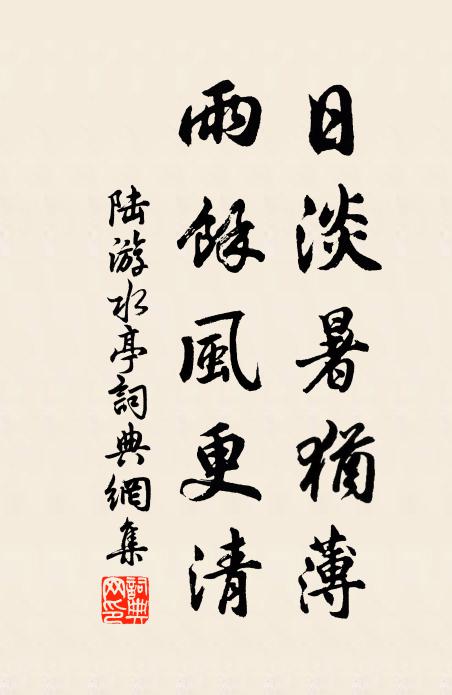 日淡暑猶薄
雨餘風更清
陆游水亭詞典網集
詞典网印